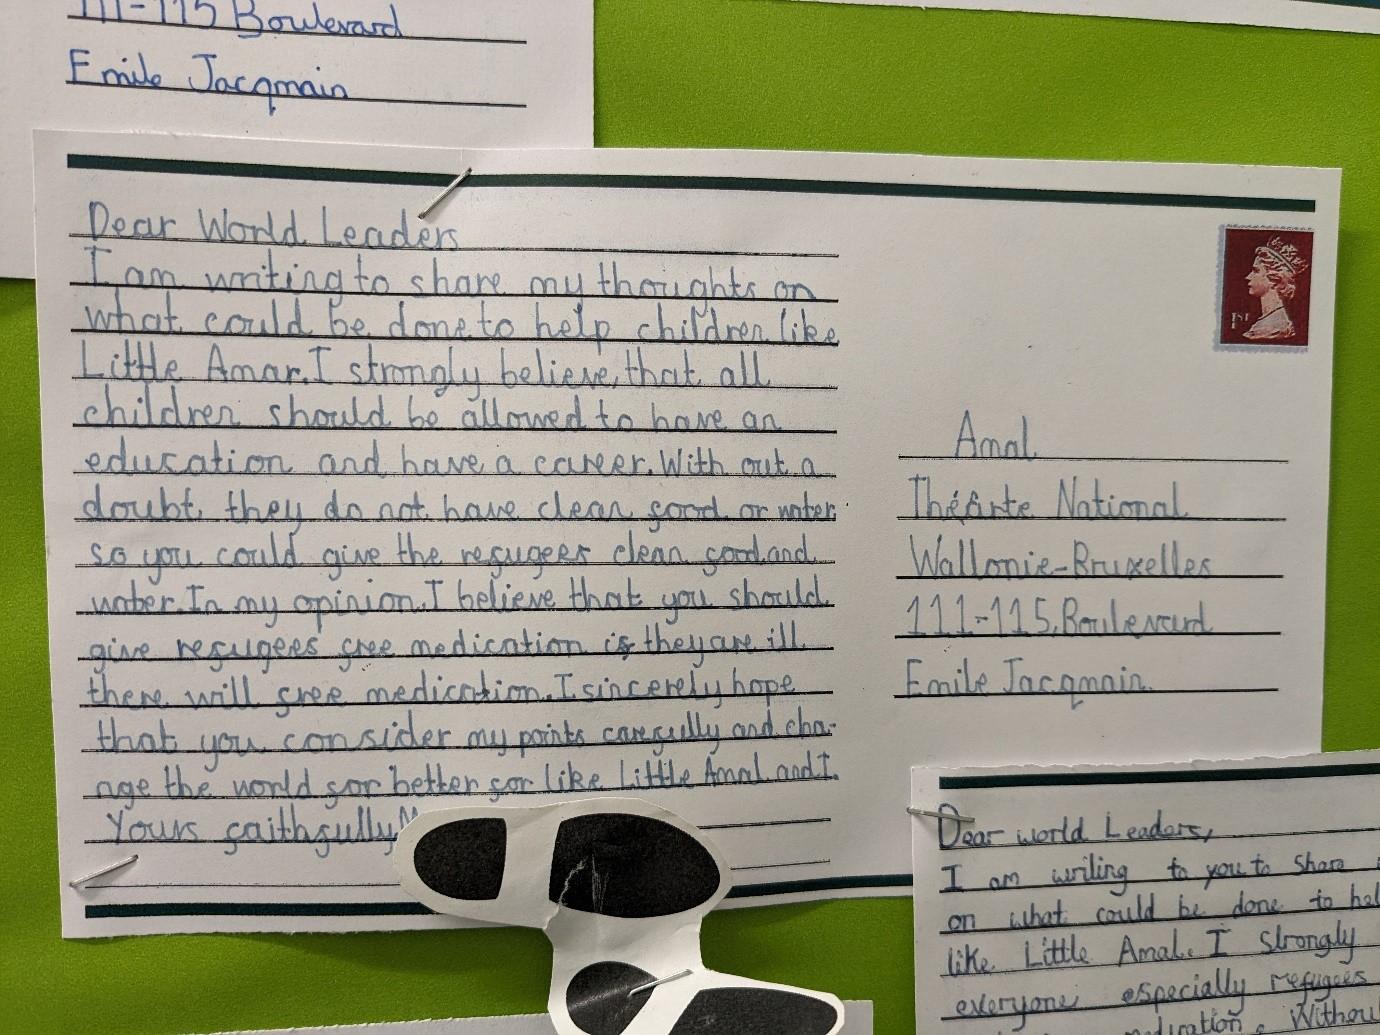 111-115 Boulevard
Emile Jacqmain
Dear World Leaders
I am writing to share my thoughts on
what could be done to help children like
Little Amar. I strongly believe, that all
children should be allowed to have an
education and have a career. With out a
doubt, they do not have clean food or water
so you could give the refugees clean food and
water. In my opinion, I believe that you should
give refugees free medication if they are ill
there will free medication. I sincerely hope
that you consider my points carefully and cha-
nge the world for better for like Little Amal and I.
Yours faithfully
1ST
Amal
Théârte National
Wallonie-Bruxelles
111-115, Boulevard
Emile Jacqmain.
Dear world Leaders,
I am writing to you to share
on what could be done to hel
like Little Amal. I strongly
everyone especially refugees
Withou